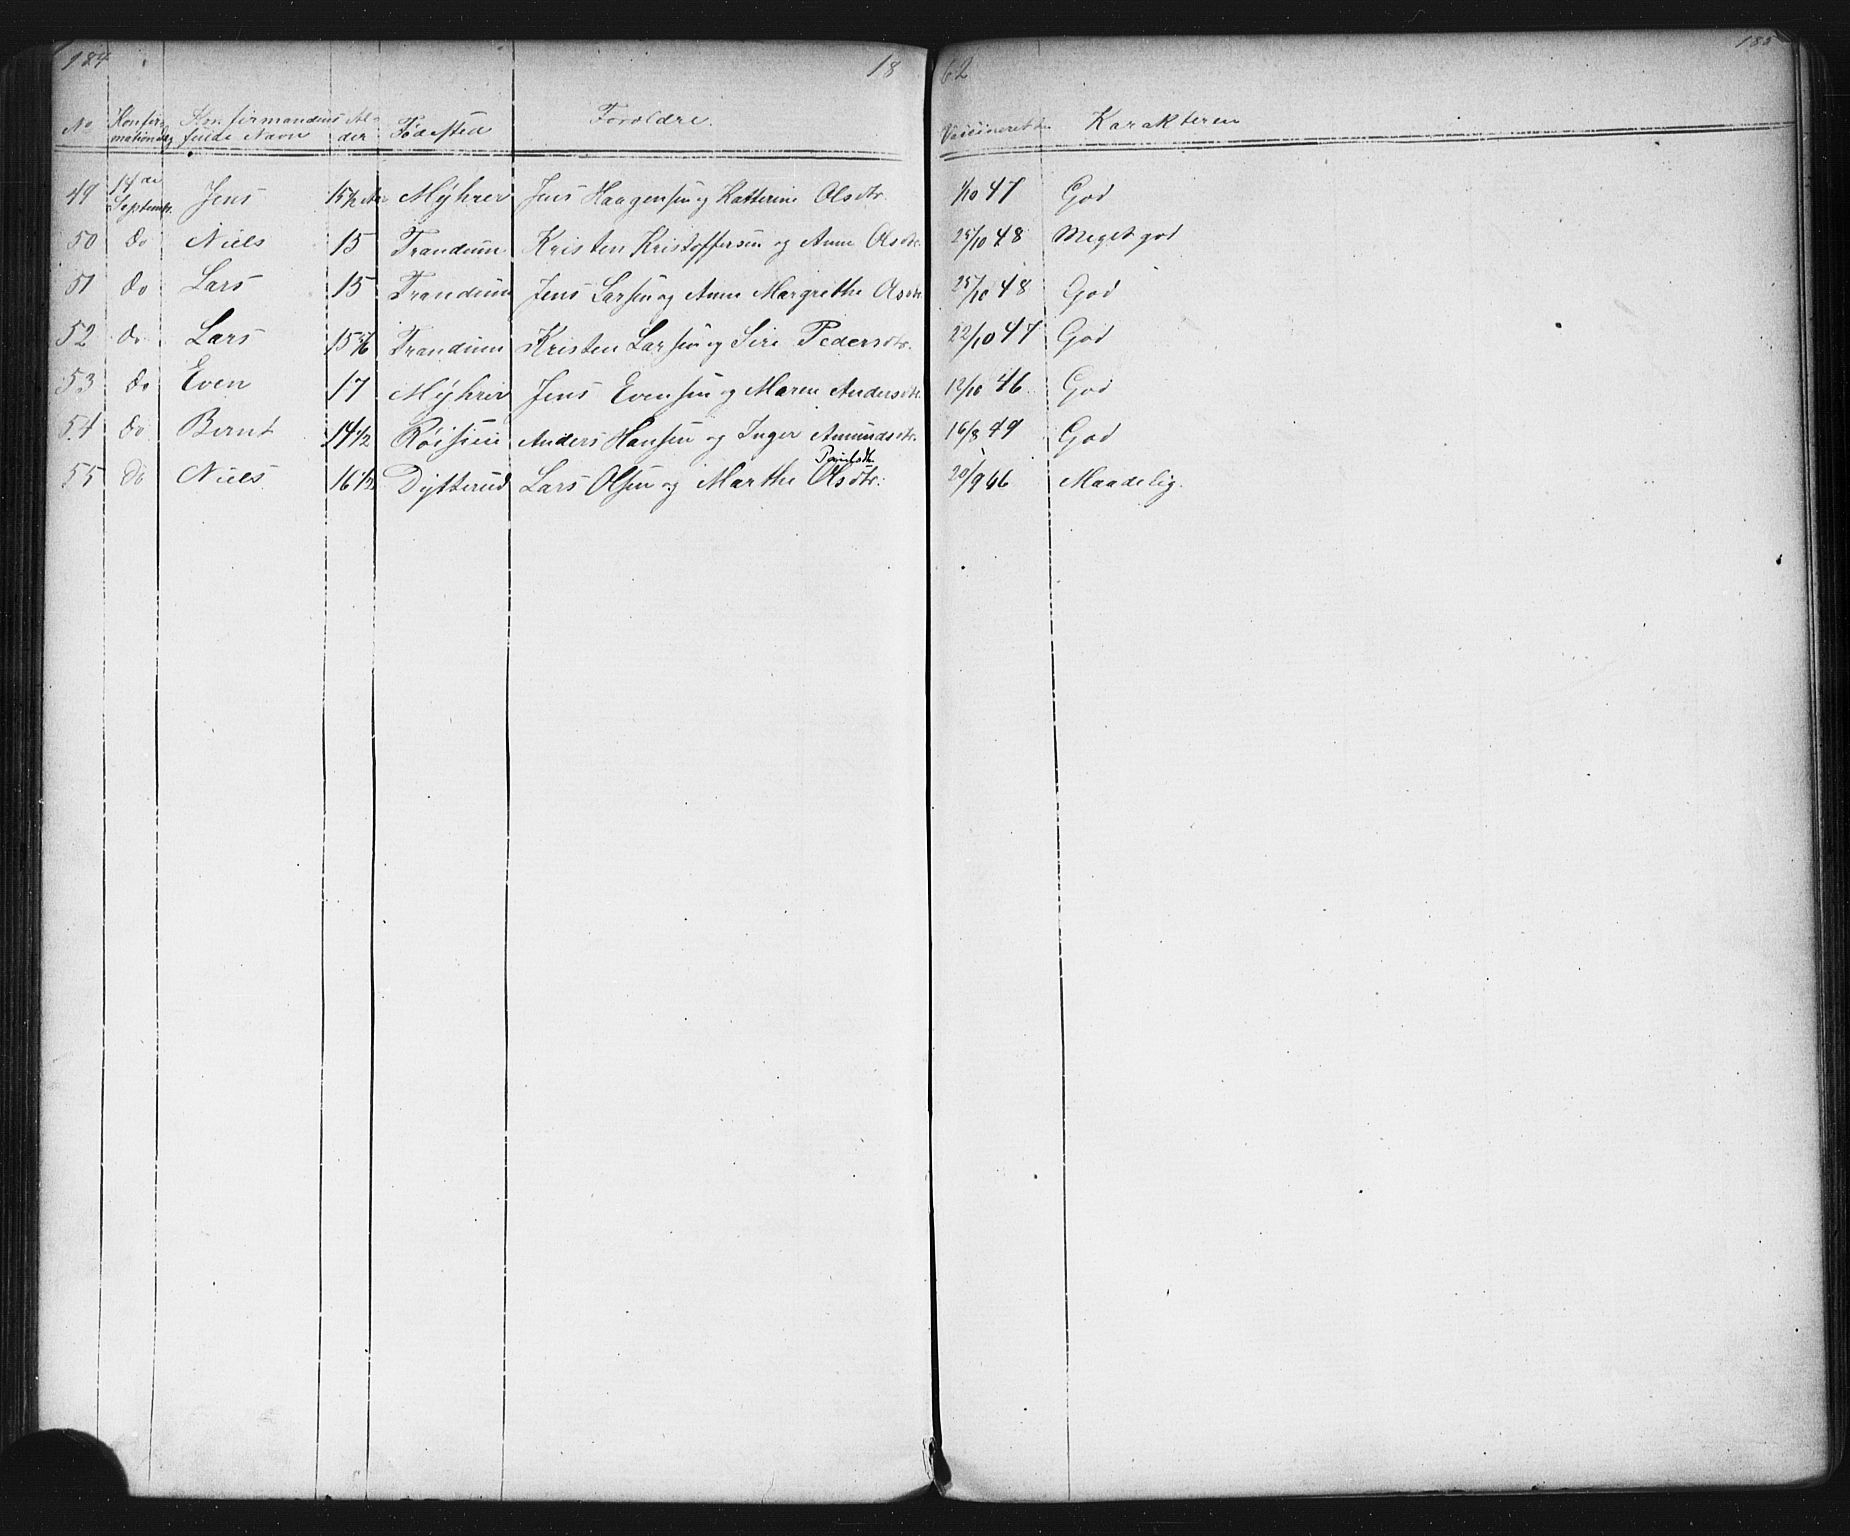 184 18 62 185
No Konfirmationsdag Konfirmandens fulde Navn Alder Fødested Forældre. Vaccineret Karakteren
49 14de Septembr. Jens 15½ Aar Myhrer Jens Haagensen og Katterine Olsdtr. 1/10 47 God
50 do Niels 15 Trandum Kristen Kristoffersen og Anne Olsdtr. 25/10 48 Meget god
51 do Lars 15 Trandum Jens Larsen og Anne Margrethe Olsdtr. 25/10 48 God
52 do Lars 15 Trandum Kristen Larsen og Siri Pedersdtr. 22/10 47 God
53 do Even 17 Myhrer Jens Evensen og Maren Andersdtr. 12/10 46 God
54 do Bernt 14½ Røisen Anders Hansen og Inger Amundsdtr. 16/8 49 God
Poulsdtr.
55 do Niels 16½ Dytterud Lars Olsen og Marthe Olsdtr. 20/9 46 Maadelig.